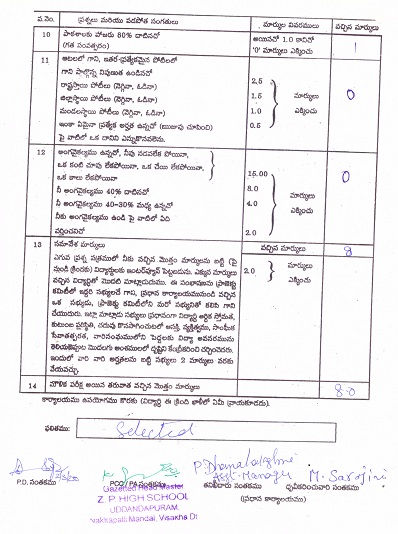 ప.నెం. ప్రశ్నలు మరియు వడపోత సంగతులు మార్కుల వివరములు వచ్చిన మార్కులు
10 పాఠశాలకు హాజరు 80% దాటినచో అయినచో 1.0 కానిచో 1
(గత సంవత్సరం) '0' మార్కులు ఎక్కించు
11 ఆటలలో గాని, ఇతర-ప్రత్యేకమైన పోటీలలో
గాని పాల్గొన్న నిపుణుత ఉండినచో 2.5
రాష్ట్రస్థాయి పోటీలు (నెగ్గినా, ఓడినా) 1.5 మార్కులు 0
జిల్లాస్థాయి పోటీలు (నెగ్గినా, ఓడినా) 1.0 ఎక్కించు
మండలస్థాయి పోటీలు (నెగ్గినా, ఓడినా) 0.5
ఇంకా ఏమైనా ప్రత్యేక అర్హత ఉన్నచో (ఋజువు చూపించి)
పై వాటిలో ఒక దానిని ఎన్నుకొనవలెను.
12 అంగవైకల్యము ఉన్నచో, నీవు నడవలేక పోయినా,
ఒక కంటి చూపు లేకపోయినా, ఒక చేయి లేకపోయినా, 15.00 0
ఒక కాలు లేకపోయినా 8.0 మార్కులు
నీ అంగవైకల్యము 40% దాటినచో 4.0 ఎక్కించు
నీ అంగవైకల్యము 40-30% మధ్య ఉన్నచో
నీకు అంగవైకల్యము ఉండి పై వాటిలో ఏది 2.0
వర్తించనిచో
13 సమావేశ మార్కులు వచ్చిన మార్కులు 8
ఎగువ ప్రశ్న పత్రములో నీకు వచ్చిన మొత్తం మార్కులను బట్టి (పై
నుండి క్రిందకు) విద్యార్థులకు ఇంటర్వ్యూస్ పెట్టబడును. ఎక్కువ మార్కులు 2.0 మార్కులు
వచ్చిన విద్యార్థితో మొదట మాట్లాడుదుము. ఈ సంభాషణను ప్రాజెక్టు ఎక్కించు
కమిటీలో ఇద్దరి సభ్యులచే గాని, ప్రధాన కార్యాలయమునుండి వచ్చిన
ఒక సభ్యుడు, ప్రాజెక్టు కమిటీలోని మరో సభ్యునితో కలిసి గాని
చేయుదురు. ఇలా మాట్లాడు సభ్యులు ప్రధానంగా విద్యార్థి ఆర్థిక స్తోమత,
కుటుంబ పరిస్థితి, చదువు కొనసాగించుటలో ఆసక్తి, వ్యక్తిత్వము, సాంఘిక
ఇందులో వారి వారి అర్హతలను బట్టి సభ్యులు 2 మార్కులు వరకు
వేయవచ్చు.
14 మౌఖిక పరీక్ష అయిన తరువాత వచ్చిన మొత్తం మార్కులు 8-0
కార్యాలయము ఉపయోగము కొరకు (విద్యార్థి ఈ క్రింది ఖాళీలో ఏమీ వ్రాయకూడదు).
ఫలితము: Selected
P. Dhanalakshmi
Asst-Manager M. Sarojini
P.D. సంతకము PCO/PA సంతకము తనిఖీదారు సంతకము ధృవీకరించువారి సంతకము
Gazetted Head Master (ప్రధాన కార్యాలయము)
Z. P. HIGH SCHOOL
UDDANDAPURAM,
Nakkapalli Mandal, Visakha Dt.